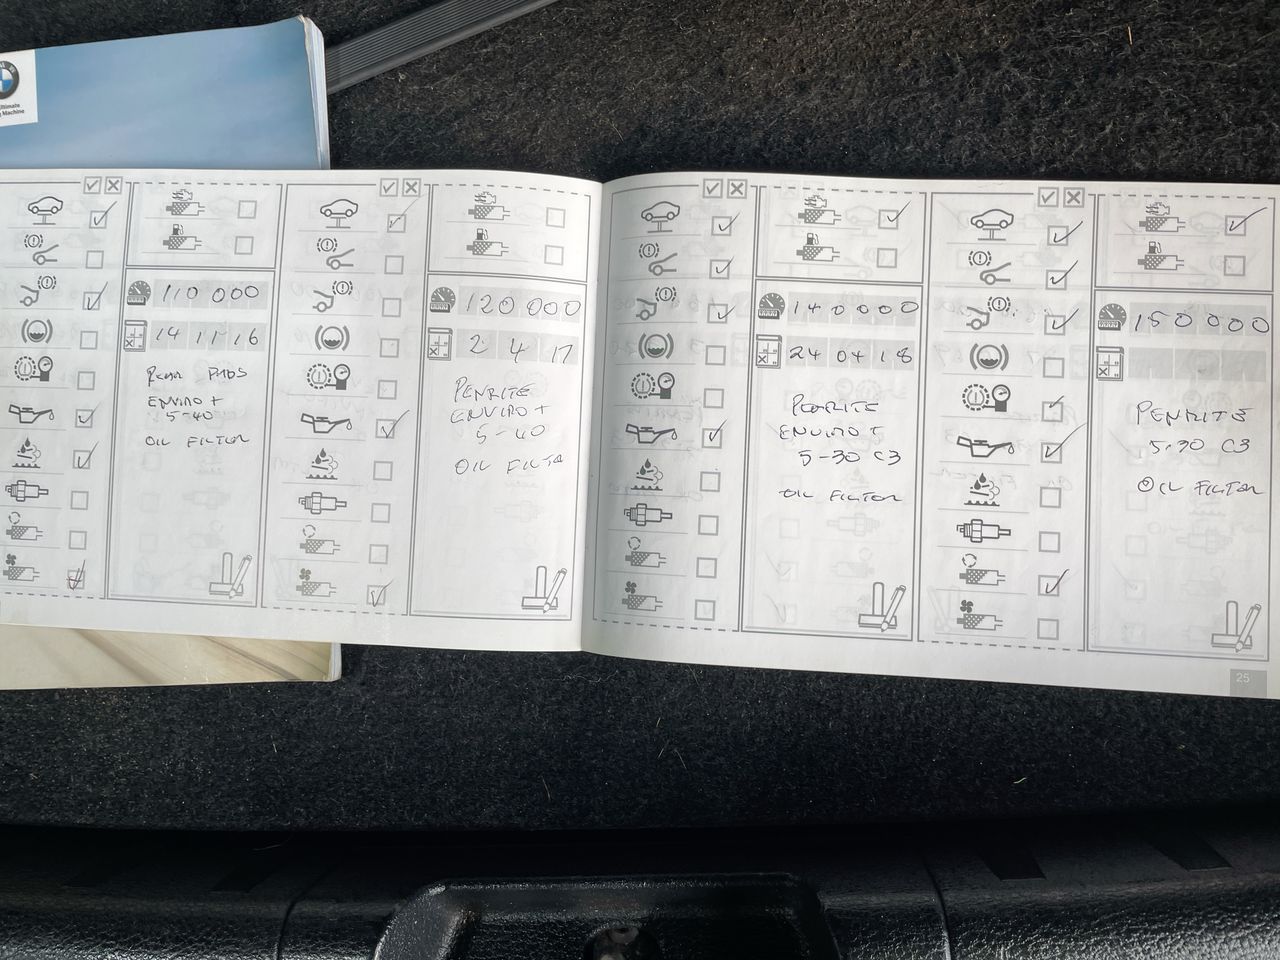 Ultimate
Machine
110 000
14 11 16
REAR PADS
ENVIRO +
5-40
OIL FILTER
120 000
2 4 17
PENRITE
ENVIRO +
5-40
OIL FILTER
140000
24 04 18
PENRITE
ENVIRO +
5-30 C3
OIL FILTER
150000
PENRITE
5-30 C3
OIL FILTER
25